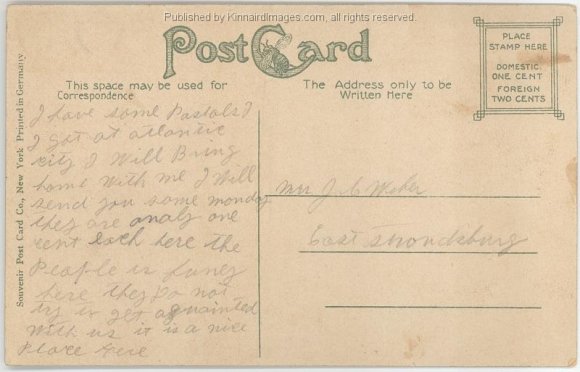 Published by KinnairdImages.com, all rights reserved.
Post Card
This space may be used for
Correspondence
The Address only to be
Written Here
PLACE
STAMP HERE
DOMESTIC
ONE CENT
FOREIGN
TWO CENTS
Souvenir Post Card Co., New York Printed in Germany
I have some Postals
I got at atlantic
city I Will Bring
home With me I Will
send you some monday
they are analy one
cent Each here the
People is funey
here they Do not
try to get aquainted
With us it is a nice
Place here
Mr J. C
East Stroudsburg